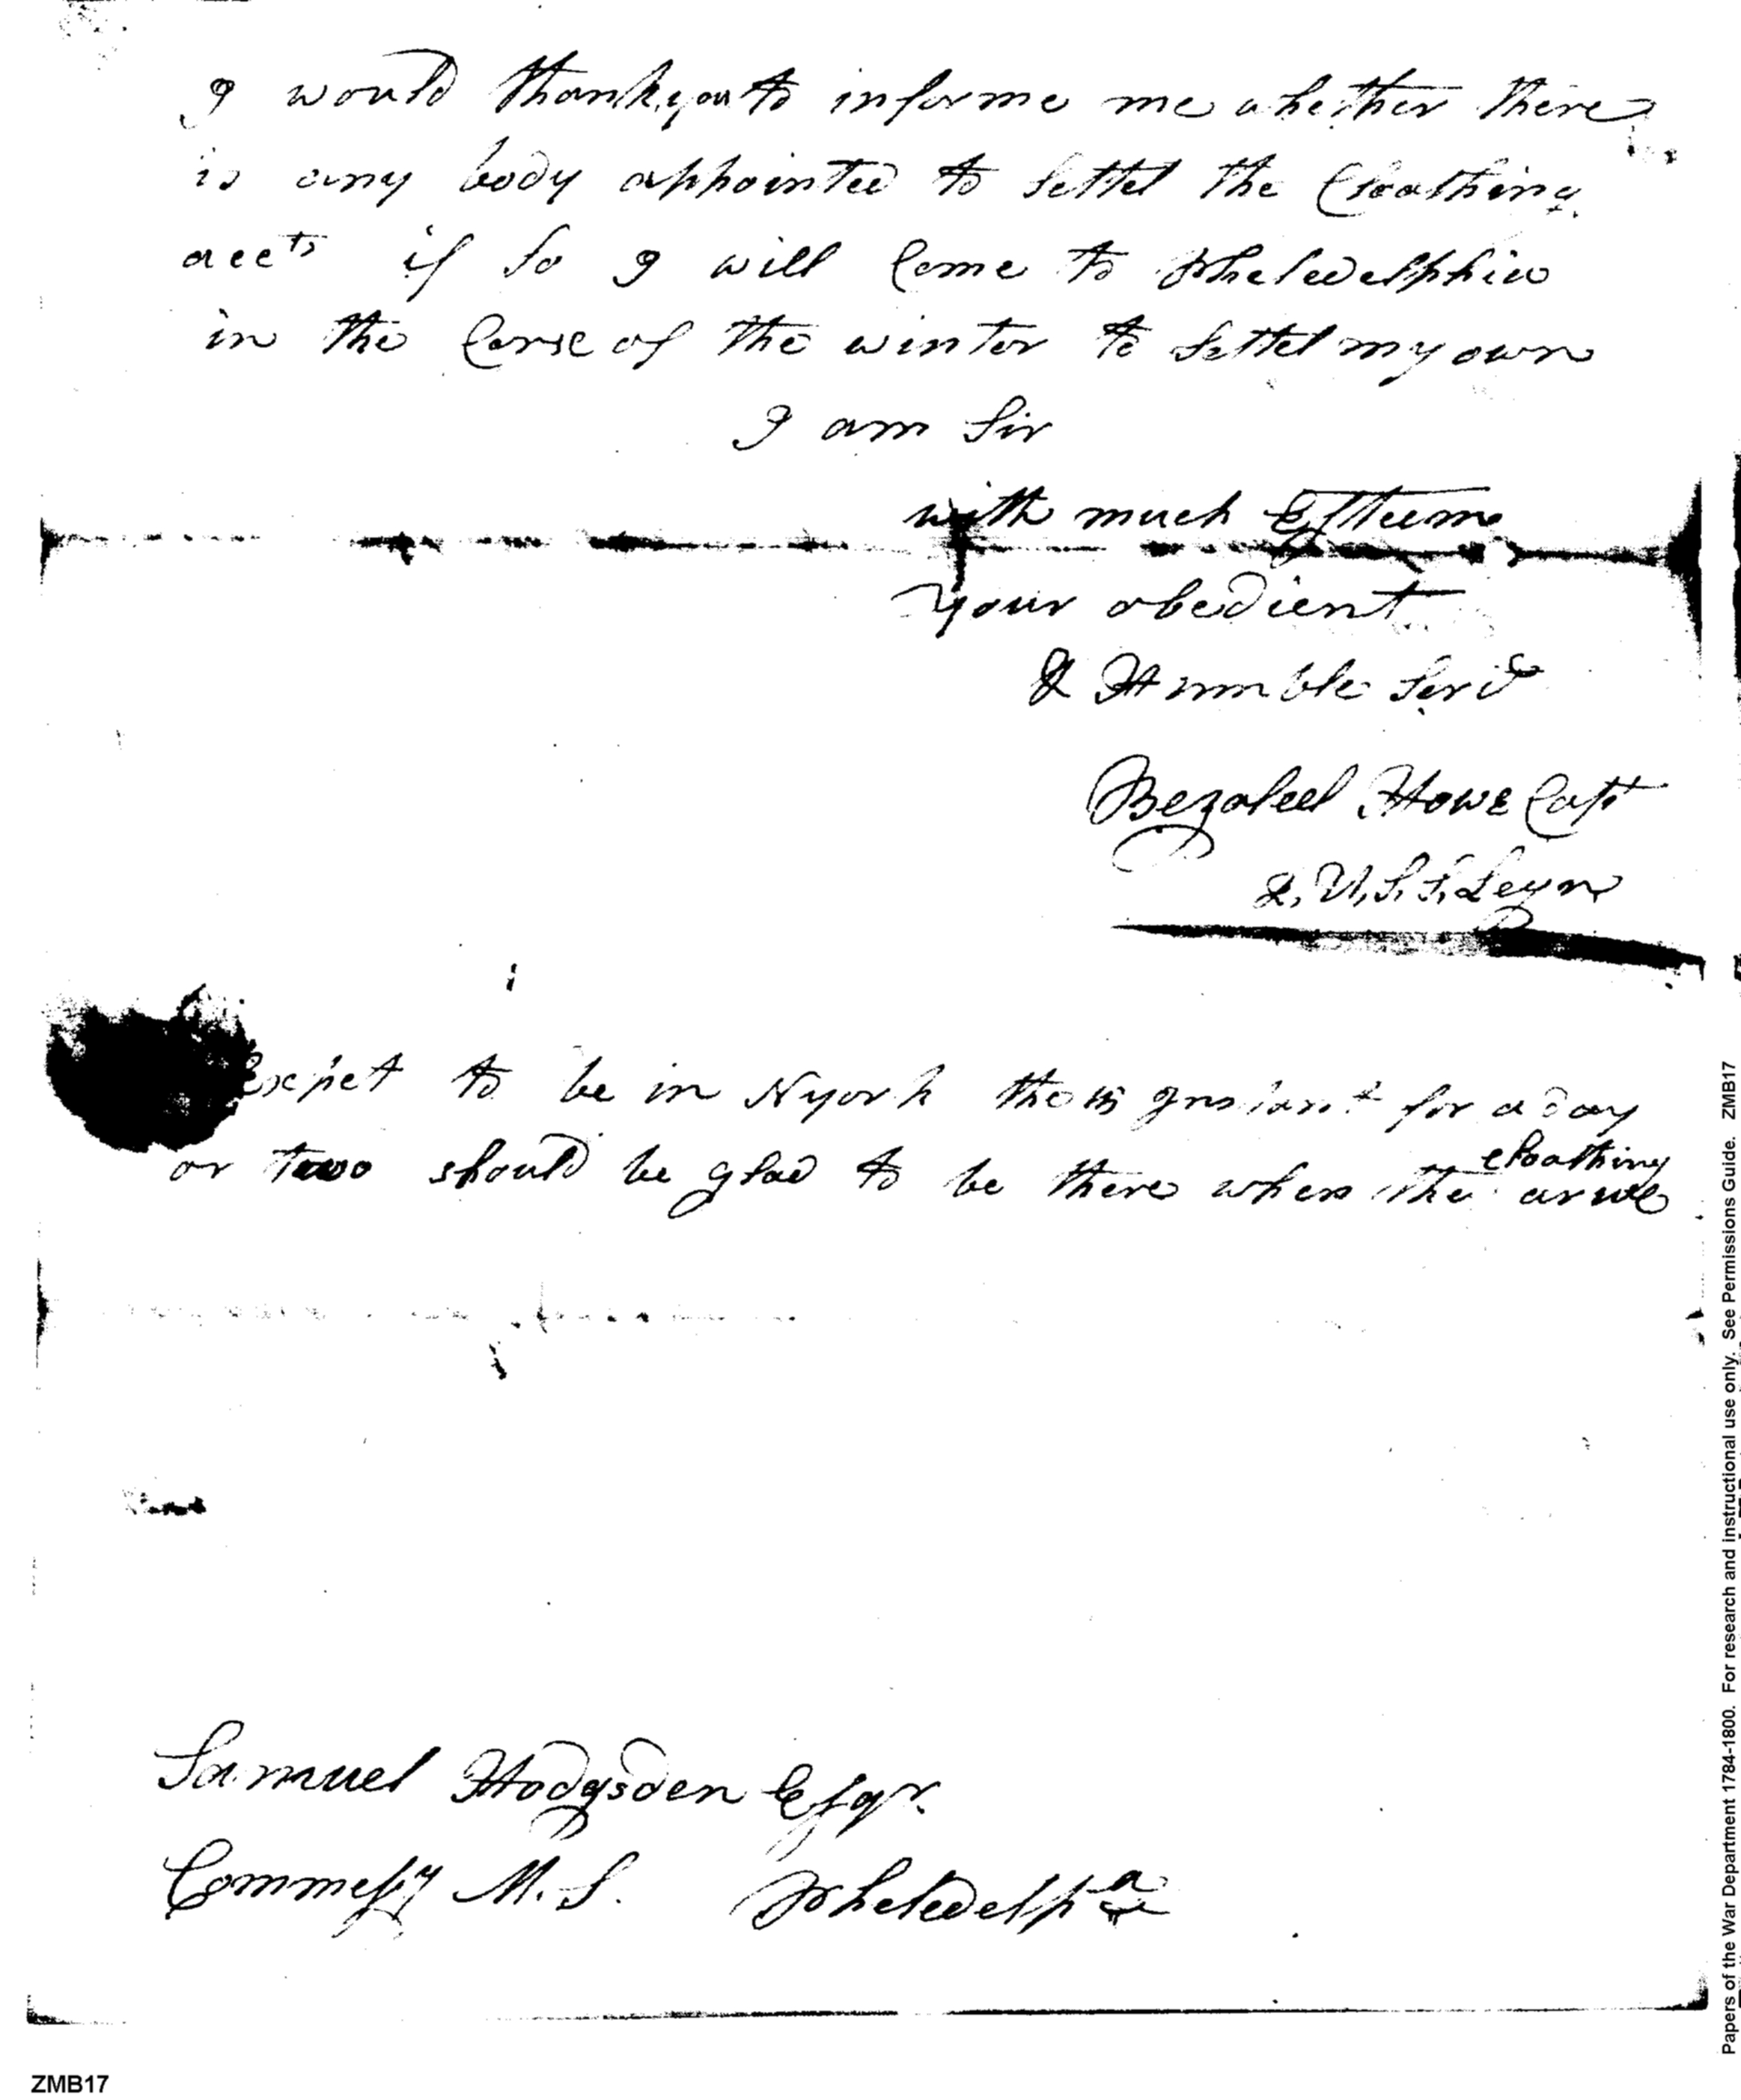 I would thank you to informe me whether there
is any body appointed to settel the Cloathing
accts if so I will Come to Pheledelphia
in the Corse of the winter to settel my own
I am Sir
with much Esteeme
your obedient
& Humble Servt
Bezaleel Howe Capt
2. U. S. S. Legn
Expet to be in Nyork the 15 Instant for a day
or two should be glad to be there when the cloathing arive
Samuel Hodgsden Esqr.
Commessy M. S. Pheledelpa
Papers of the War Department 1784-1800. For research and instructional use only. See Permissions Guide. ZMB17
ZMB17